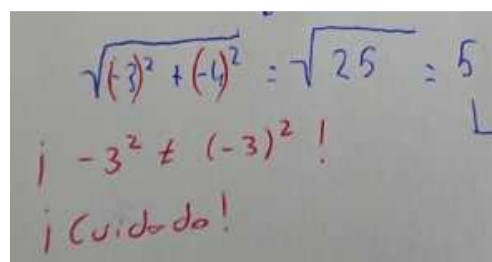 √(-3)² + (-4)² = √25 = 5
¡ -3² ≠ (-3)² !
¡Cuidado!